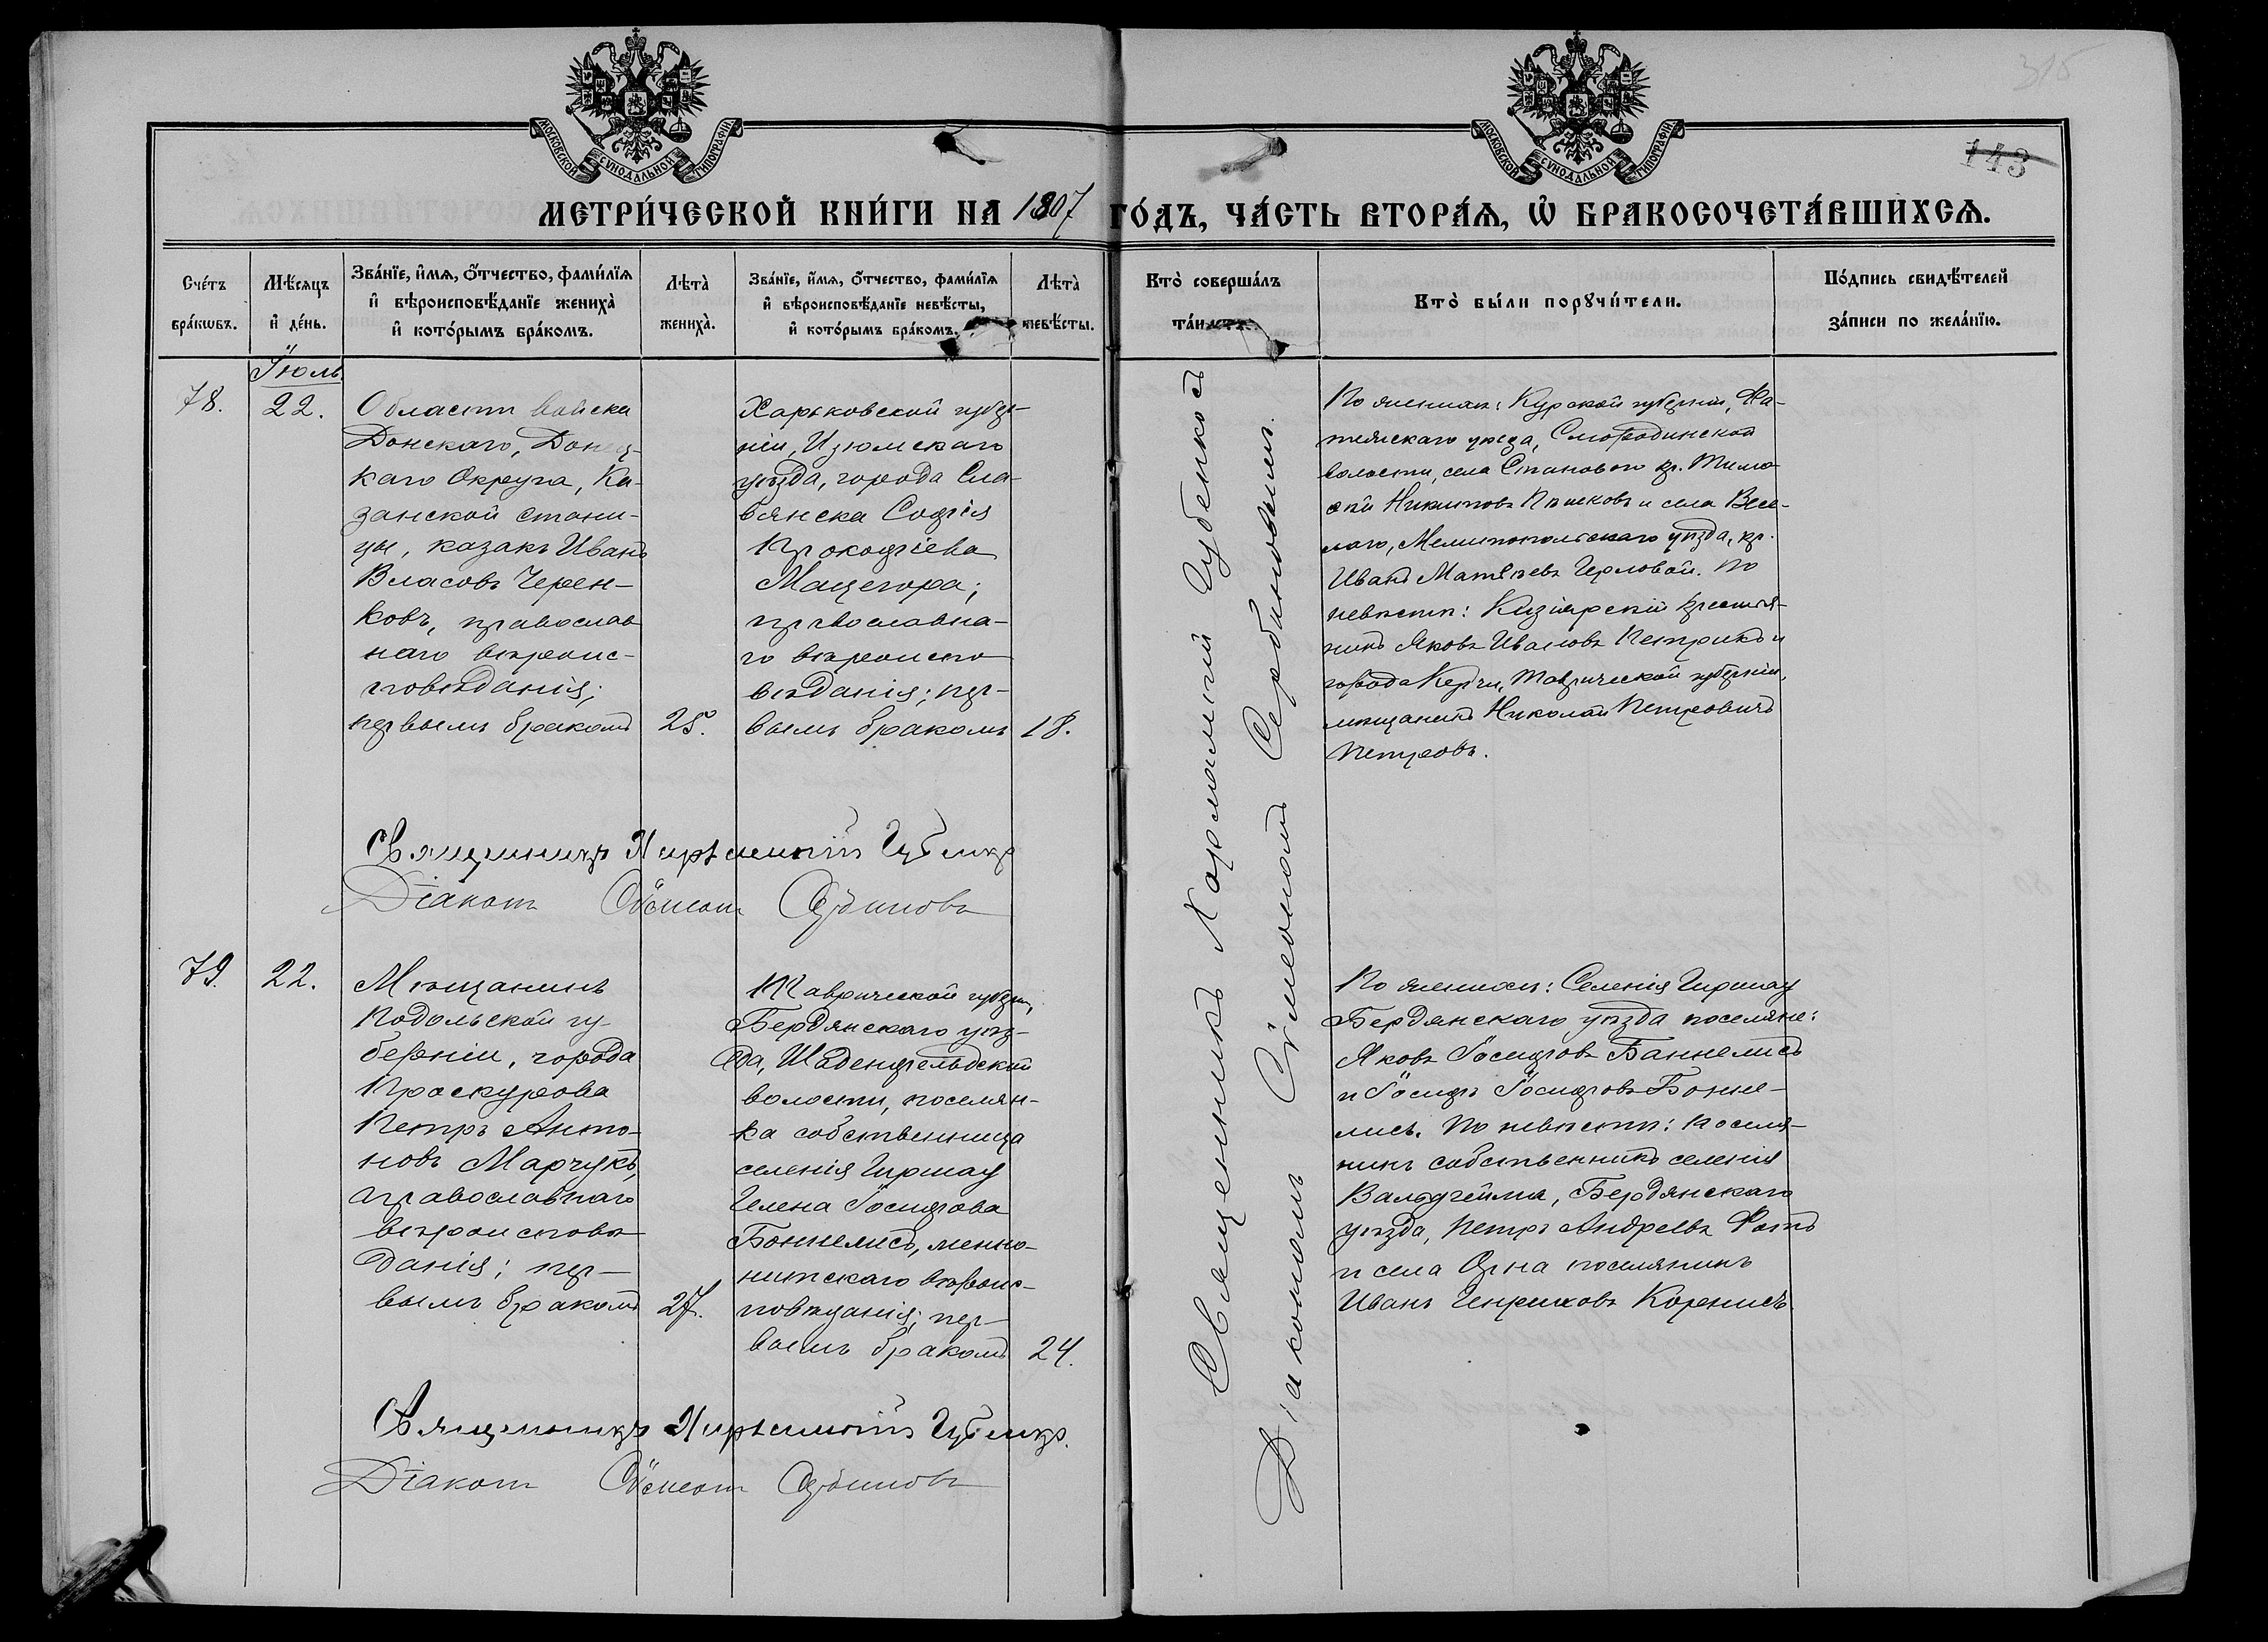 315
143
МОСКОВСКОЙ СѴНОДАЛЬНОЙ ТИПОГРАФІИ
МОСКОВСКОЙ СѴНОДАЛЬНОЙ ТИПОГРАФІИ
МЕТРИ́ЧЕСКОЙ КНИ́ГИ НА 1907 ГО́ДЪ, ЧА́СТЬ ВТОРА́Я, Ѡ БРАКОСОЧЕТА́ВШИХСЯ.
Сче́тъ
бра́кѡвъ.
Мѣ́сяцъ
и҆ де́нь.
Зва́нїе, и҆́мя, ѻ҆́тчество, фами́лїя
и҆ вѣроисповѣ́данїе жениха̀
и҆ кото́рымъ бра́комъ.
Лѣта̀
жениха̀.
Зва́нїе, и҆́мя, ѻ҆́тчество, фами́лїя
и҆ вѣроисповѣ́данїе невѣ́сты,
и҆ кото́рымъ бра́комъ.
Лѣта̀
невѣ́сты.
Кто̀ соверша́лъ
та́инство.
Кто̀ бы́ли порꙋчи́тели.
По́дпись свидѣ́телей
за́писи по жела́нїю.
Іюль
78.
22.
Области войска
Донскаго, Донец-
каго Округа, Ка-
занской стани-
цы, казакъ Иванъ
Власовъ Черен-
ковъ, православ
наго вѣроис-
повѣданія;
первымъ бракомъ
25.
Харьковской губер-
ніи, Изюмскаго
уѣзда, города Сла-
вянска Софія
Прокофіева
Мацегора;
православна-
го вѣроиспо
вѣданія; пер-
вымъ бракомъ
18.
Священникъ Харлампій Губенко съ
Діакономъ Сѵмеономъ Сербиновымъ.
По женихѣ: Курской губерніи, Фа-
тежскаго уѣзда, Смородинской
волости, села Становаго кр. Тимо
фей Никитовъ и села Весе-
лаго, Мелитопольскаго уѣзда, кр.
Иванъ Матвѣевъ Черловой. По
невѣстѣ: Кизіярскій крестья-
нинъ Яковъ Ивановъ Петрикъ и
города Керчи, Таврической губерніи,
мѣщанинъ Николай Петровичъ
Петровъ.
Священникъ Харлампій Губенко
Діаконъ Сѵмеонъ Сербиновъ
79.
22.
Мѣщанинъ
Подольской гу-
берніи, города
Проскурова
Петръ Анто-
новъ Марчукъ,
православнаго
вѣроисповѣ
данія; пер-
вымъ бракомъ
27.
Таврической губерн.,
Бердянскаго уѣз-
да, Шаденфельдской
волости, поселян-
ка собственница
селенія Гиршау
Гелена Іосифова
Боннелисъ, менно-
нитскаго вѣроис-
повѣданія; пер-
вымъ бракомъ
24.
По женихѣ: Селенія Гиршау
Бердянскаго уѣзда поселяне:
Яковъ Іосифовъ Баннелисъ
и Іосифъ Іосифовъ Бонне-
лисъ. По невѣстѣ: поселя-
нинъ собственникъ селенія
Вальдгейма, Бердянскаго
уѣзда, Петръ Андреевъ Фотъ
и села поселянинъ
Иванъ Генриховъ Корнисъ
Священникъ Харлампій Губенко.
Діаконъ Сѵмеонъ Сербиновъ